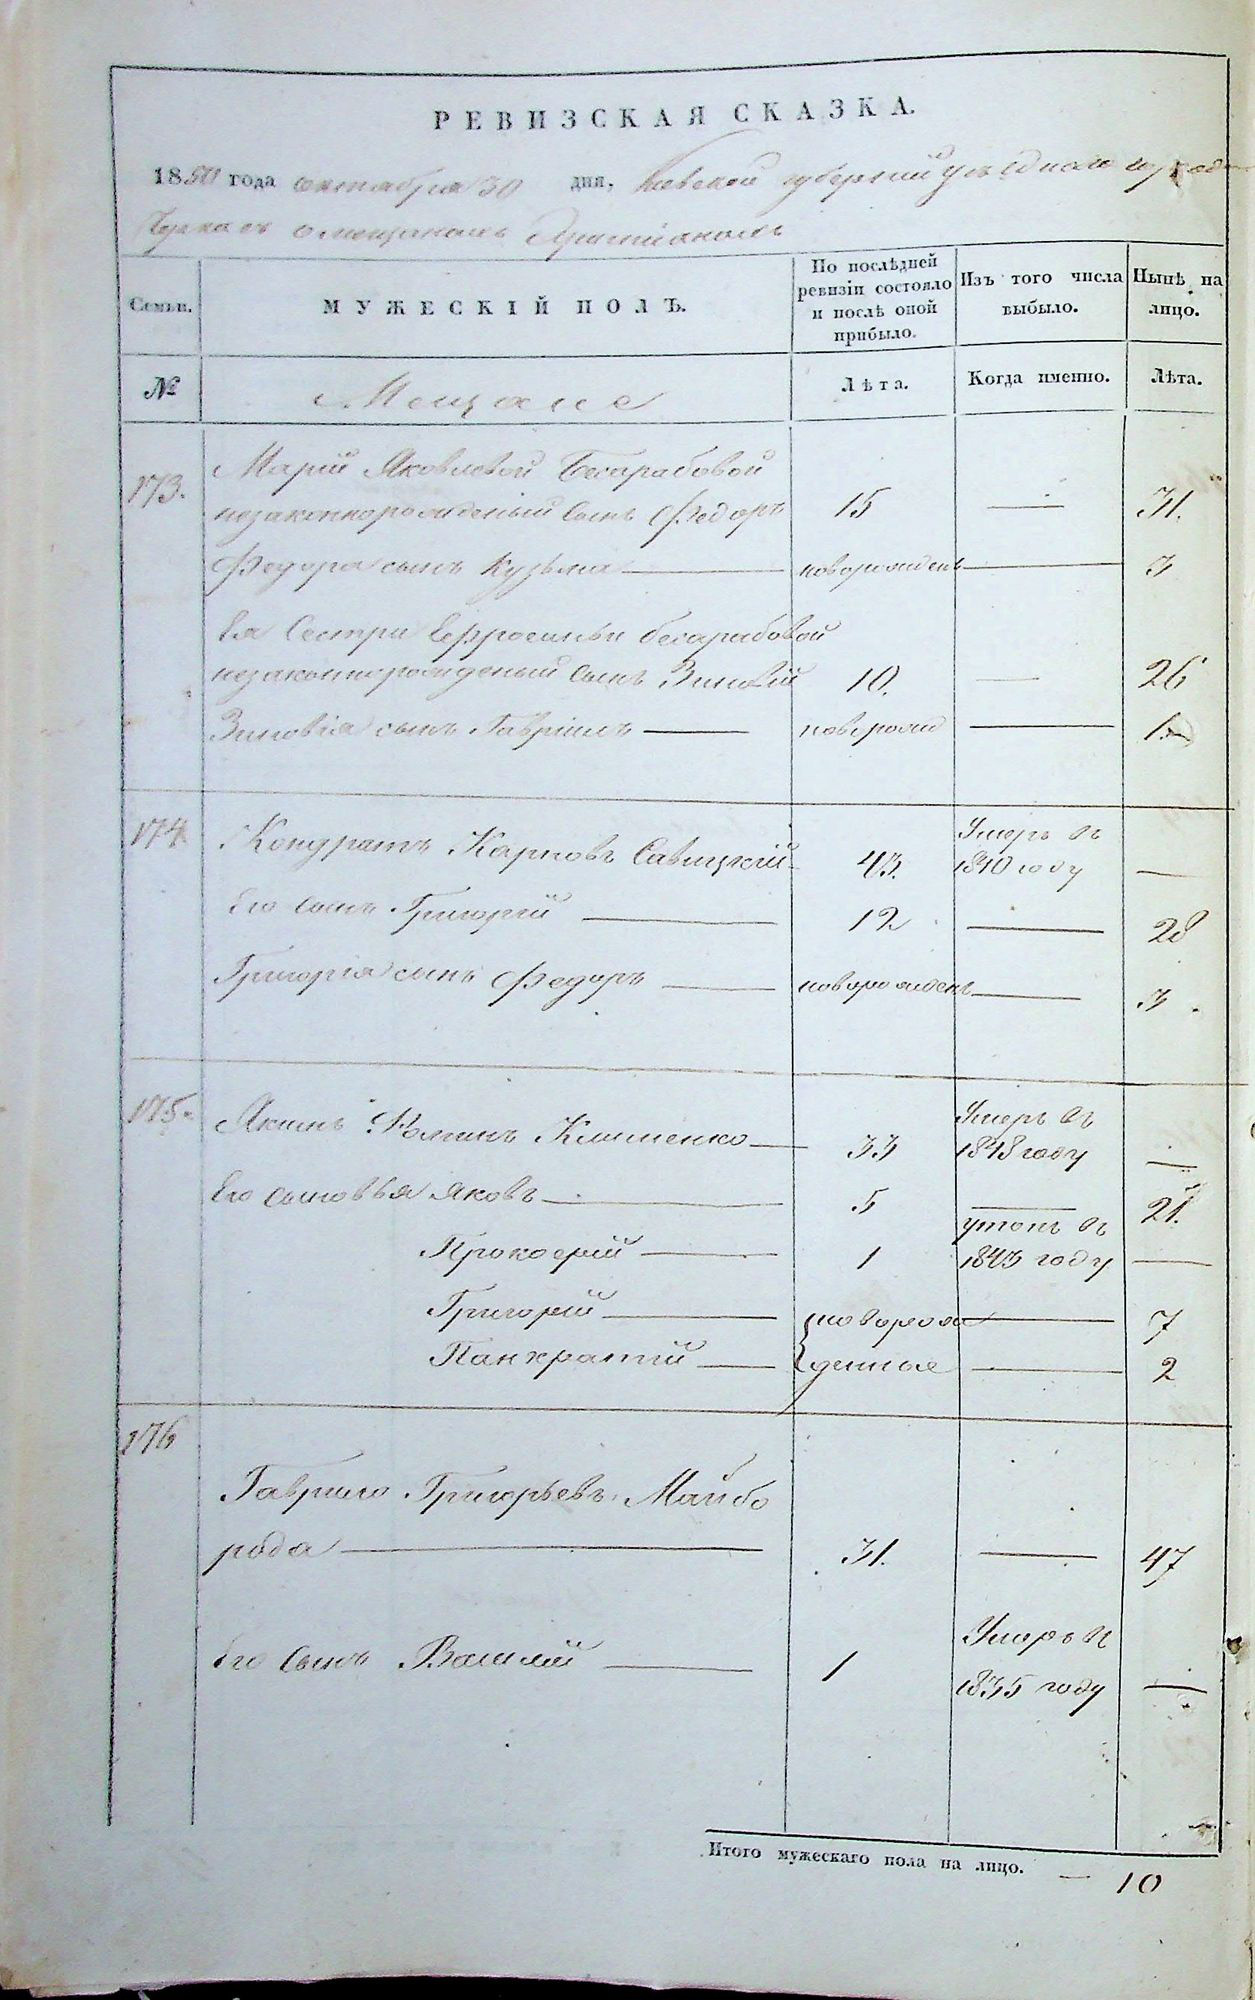 РЕВИЗСКАЯ СКАЗКА.
1850 года октября 30 дня, Киевской губернии уездного города
о мещанахъ христіанахъ
Семьи.
МУЖЕСКІЙ ПОЛЪ.
По послѣдней ревизіи состояло и послѣ оной прибыло.
Изъ того числа выбыло.
Нынѣ на лицо.
№
Мещане
Лѣта.
Когда именно.
Лѣта.
173.
Маріи Яковлевой Бесарабовой
незаконнорожденый сынъ Федоръ 15 — 31.
Федора сынъ Кузьма — новорожденъ — 3
Ея Сестры Ефросиньи бесарабовой
незаконнорожденый сынъ Зиновій 10. — 26
Зиновія сынъ Гавріилъ — новорожд — 1
174
Кондратъ Карповъ Савицкій 43. Умеръ въ 1840 году —
Его сынъ Григорій — 12 — 28
Григорія сынъ Федоръ — новорожденъ — 3.
175.
Якимъ Романъ Клименко — 33 Умеръ въ 1848 году —
Его сыновья Яковъ — 5 — 21.
Прокофій — 1 утопъ въ 1843 году —
Григорій — новорож — 7
Панкратій — денные — 2
176
Гаврило Григорьевъ Майбо
рода — 31. — 47
Его сынъ Василий — 1 Умеръ в 1835 году —
Итого мужескаго пола на лицо. — 10